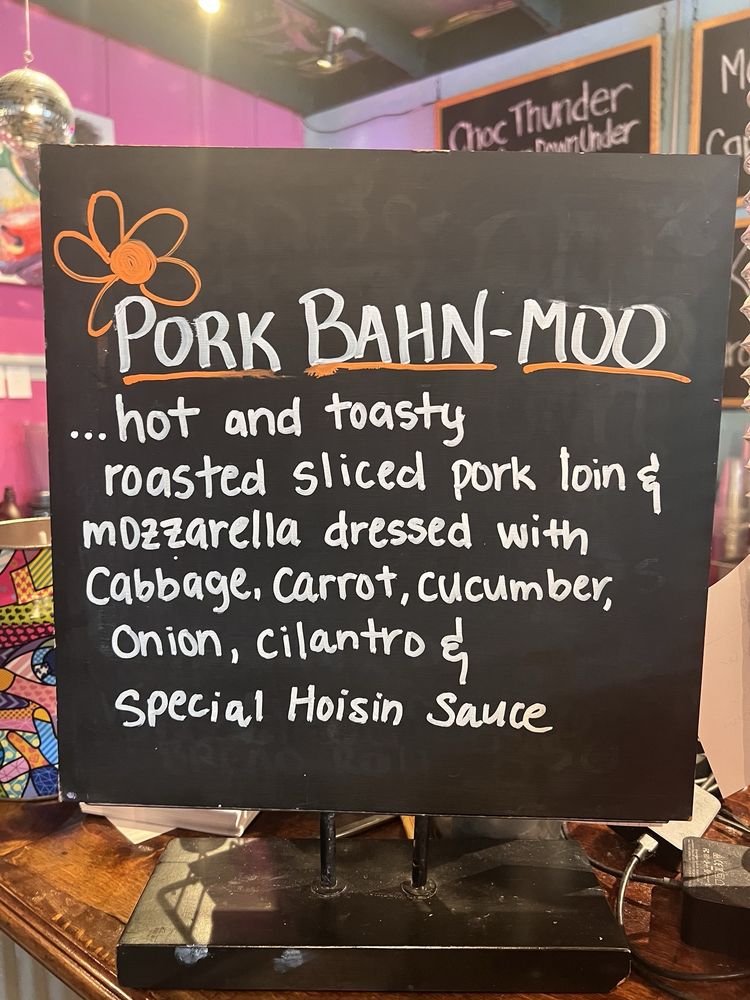 Choc Thunder
Down Under
PORK BAHN-MOO
...hot and toasty
roasted sliced pork loin &
mozzarella dressed with
Cabbage, Carrot, cucumber,
Onion, cilantro &
Special Hoisin Sauce